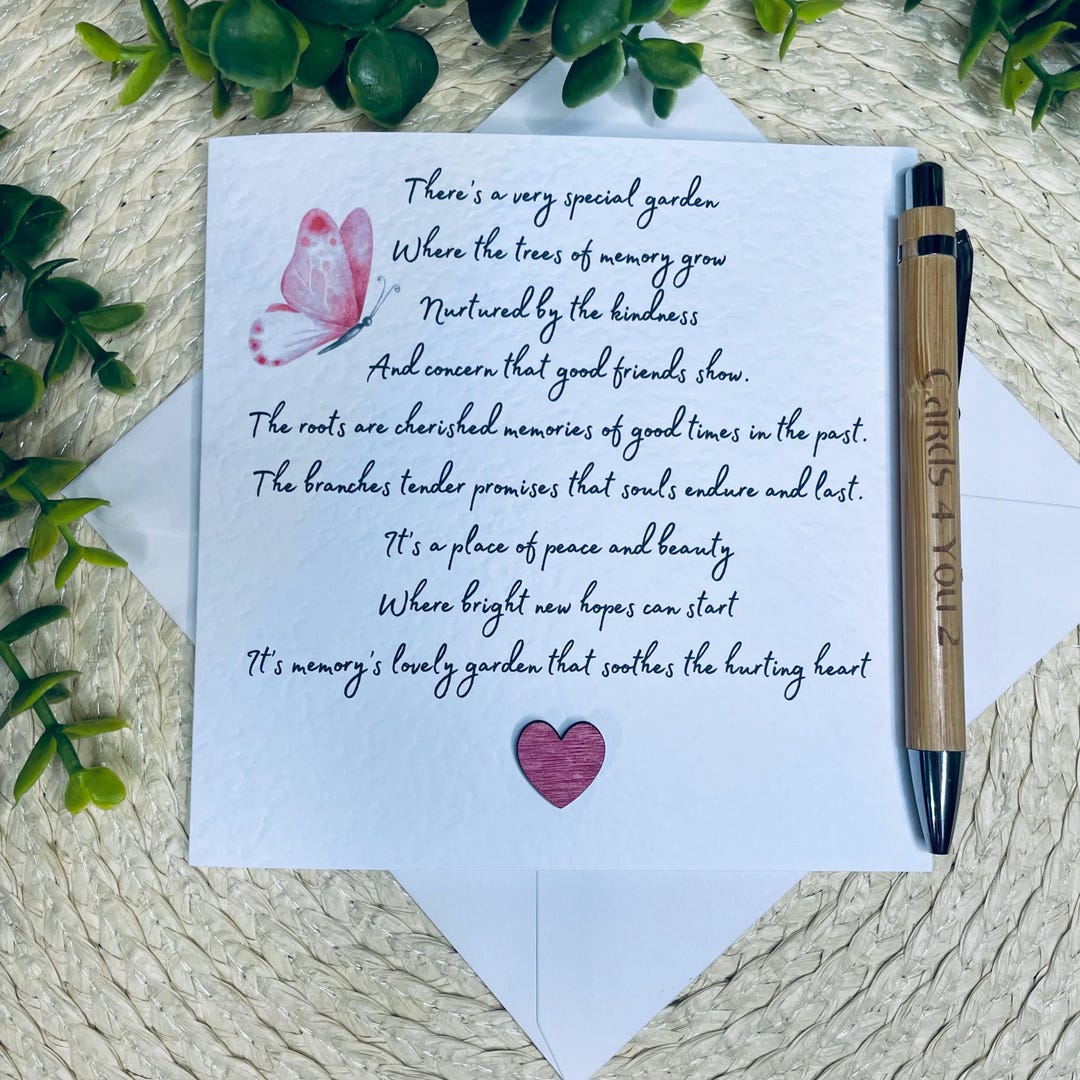 There's a very special garden
Where the trees of memory grow
Nurtured by the kindness
And concern that good friends show.
The roots are cherished memories of good times in the past.
The branches tender promises that souls endure and last.
It's a place of peace and beauty
Where bright new hopes can start
It's memory's lovely garden that soothes the hurting heart
Cards 4 You 2